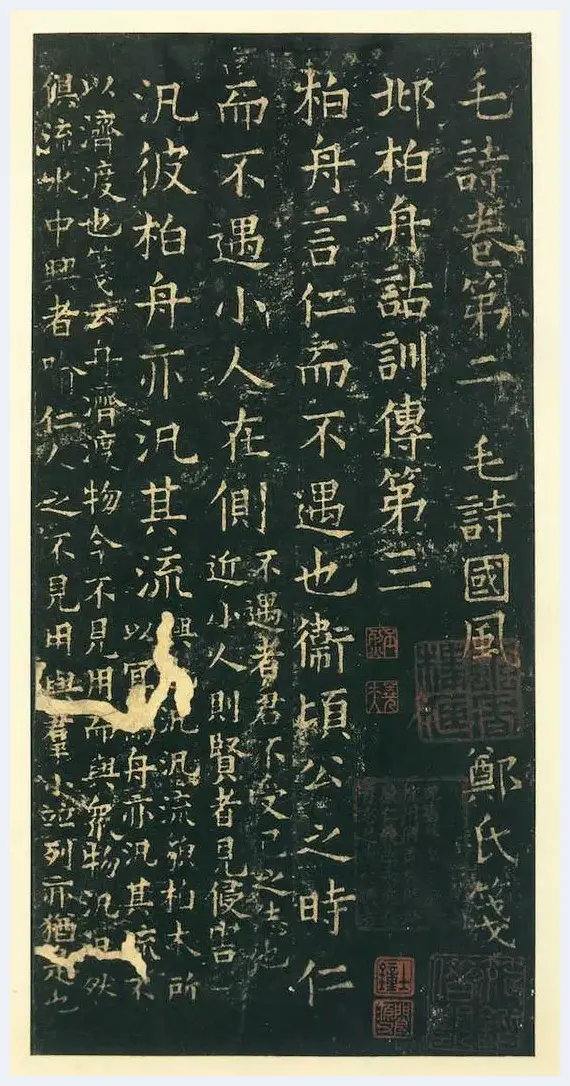 毛詩卷第二 毛詩國風 鄭氏箋
邶柏舟詁訓傳第三
柏舟言仁而不遇也衞頃公之時仁
而不遇小人在側
不遇者君不受己之志也
近小人則賢者見侵害
汎彼柏舟亦汎其流
興汎汎流皃柏木所
以冝舟亦汎其流不
以濟渡也箋云舟濟渡物今不見用而與衆物汎汎然
俱流水中興者喻仁人之不見用與羣小並列亦猶是也